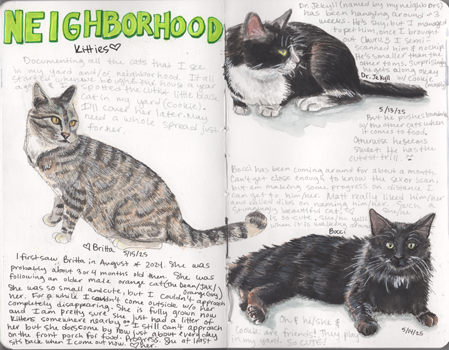 NEIGHBORHOOD
Kitties♡
Documenting all the cats that I see
in my yard and/or neighborhood. It all
started when we
ago. I spotted the cutest little black
cat in my yard (cookie).
I'll cover her later. May
need a whole spread just
for her.
♡Britta 5/15/25
I first saw Britta in August of 2024. She was
probably about 3 or 4 months old then. She was
following an older male orange cat
She was so small and cute, but I couldn't approach
her. For a while I couldn't come outside w/o her
completely disappearing. She is fully grown now
and I am pretty sure she just had a litter of
kittens somewhere nearby. I still can't approach
her but she does come by now just about everyday
on the front porch for food. Progress. She at least
sits back when I come out now. ♡her.
Dr. Jekyll (named by my neighbors)
has been hanging around ~3
weeks. He's shy, but I managed
to pet him, once I brought
out Churus. I
scanned him & no chip.
He's smaller than the
other toms. Surprisingly
he gets along okay
Dr. Jekyll
5/13/25
But he pushes
the other cats when
it comes to food.
Otherwise he seems
sweet. He has the
cutest trill.
Bocci has been coming around for about a month.
Can't get close enough to know the sex or scan
but am making some progress on distance I
can get to him/her. Matt really liked him/her
and called dibs on naming him/her.
beautiful cat!
Bocci
5/14/25
Oh & he/she &
Cookie are friends! They play
in my yard. SO CUTE!